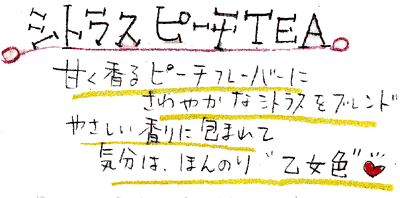 シトラスピーチTEA
甘く香るピーチフレーバーに
さわやかなシトラスをブレンド
やさしい香りに包まれて
気分は、ほんのり“乙女色”